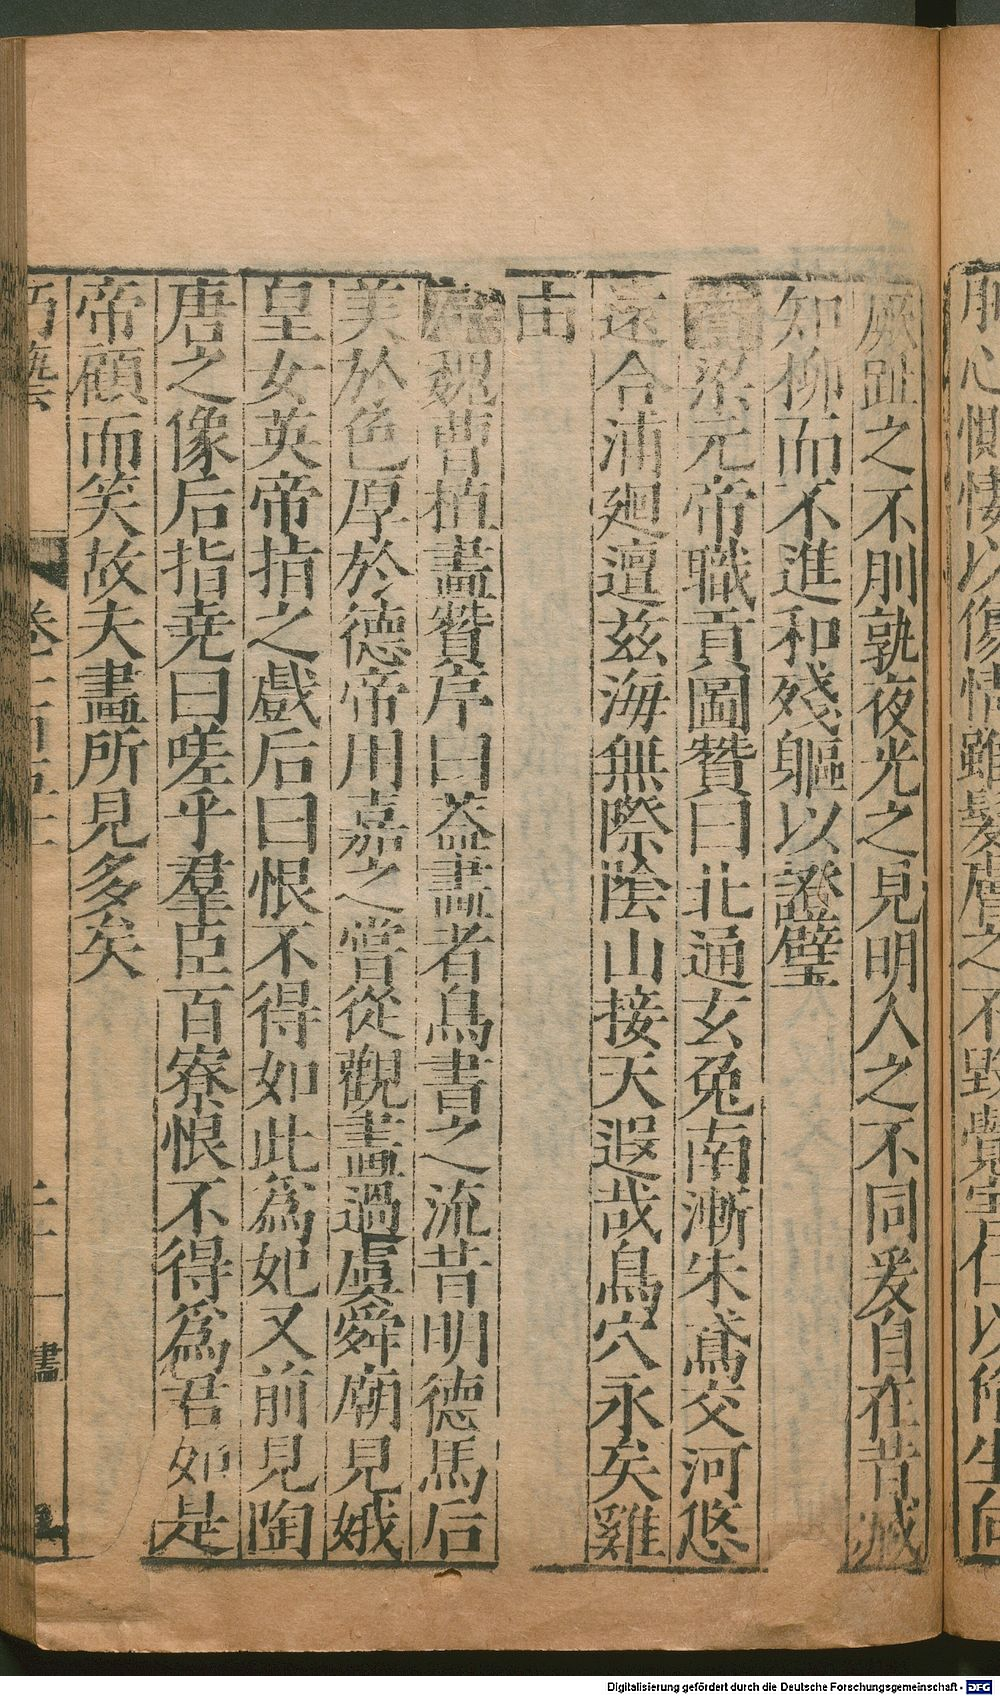 肌心慚悽以傷情雖髮膚之不毀覺室仁以
厥趾之不刖孰夜光之見明人之不同爰自在昔減
知柳而不進和殘軀以證璧
梁元帝職貢圖贊曰北通玄兔南漸朱鳶交河悠
遠合浦廻邅茲海無際陰山接天遐哉鳥穴永矣雞
田
魏曹植畫贊序曰蓋畫者鳥書之流昔明德馬后
美於色厚於德帝用嘉之嘗從觀畫過虞舜廟見娥
皇女英帝指之戲后曰恨不得如此為妃又前見陶
唐之像后指堯曰嗟乎羣臣百寮恨不得為君如是
帝顧而笑故夫畫所見多矣
卷一百五十
二十一
畫
Digitalisierung gefördert durch die Deutsche Forschungsgemeinschaft - DFG